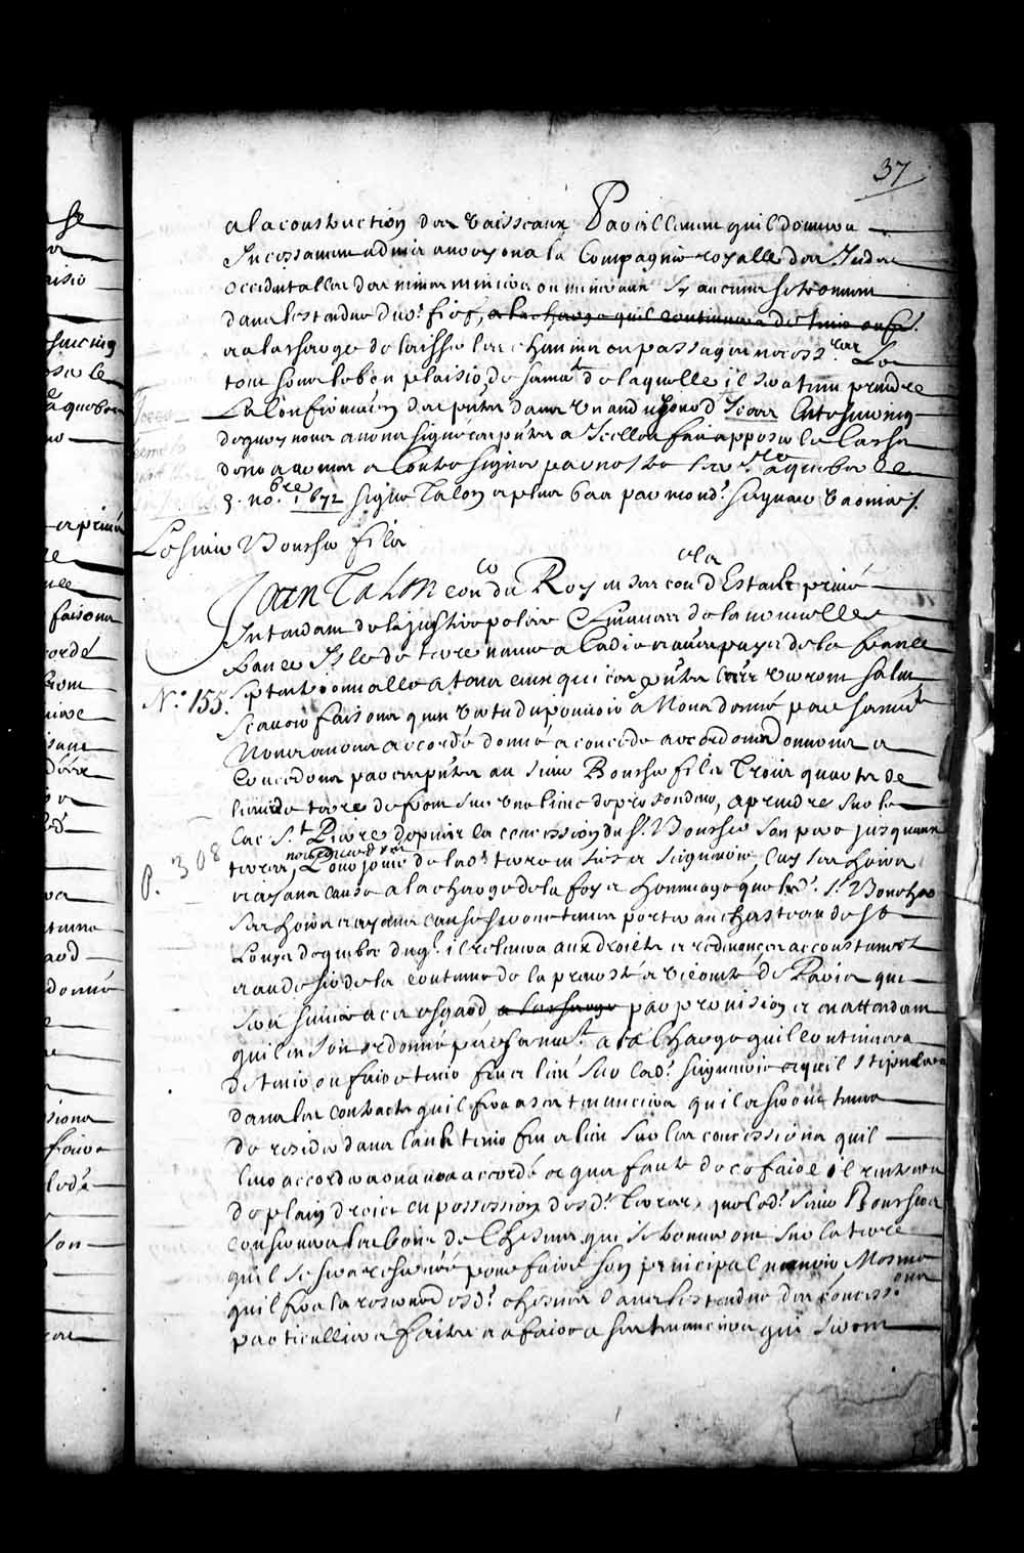 37
a la construction des vaisseaux Pareillement quil donnera
Incessamment advis au roy ou a la Compagnie royalle des Indes
occidentalles des mines minieres ou mineraux sy aucuns se trouvent
dans lestendue dud. fief, a la charge quil continuera de tenir ou f.
et a la charge de laisser les chemins ou passages necess.res Le
tout soubs le bon plaisir de sa ma.té de laquelle il sera tenu prendre
La Confirmaon des pntes dans Un an du jour d Icelles En tesmoing
dequoy nous avons signé ces pntes a Icelles fait apposer le Cachet
de nos armes et Contresigner par nostre Secr.re a quebec le
3. no.bre 1672 Signé Talon et plus bas par mond. Seigneur Varnier /.
Le Sieur Boucher fils
Jean Talon con.er du Roy en ses con.ls d Estat & privé
Intendant de la justice police & finances de la nouvelle
france Isle de terre neuve a Cadie et autres pays de la france
N.o 155. Septentrionalle a tous ceux qui ces pntes lettres verront Salut
Scavoir faisons quen Vertu du pouvoir a Nous donné par sa ma.té
Nous avons accordé donné et concedé accordons donnons et
Concedons par ces pntes au sieur Boucher fils Trois quarts de
lieue de terre de front sur une lieue de profondeur, a prendre sur le
lac S.t Pierre depuis la concession du S.r Boucher son pere jusquaux
p. 308
terres, Pour jouir de lad. terre en fief et Seigneurie luy ses hoirs
et ayans cause a la charge de la foy et hommage que led. S.r Boucher
ses hoirs et ayans cause seront tenus porter au chasteau de St
Louys de quebec duq.l il relevera aux droicts et redevances accoustumez
et au desir de la coutume de la prevosté et vicomté de Paris qui
sera suivie a cet esgard a la charge par provision et en attendant
quil en soit ordonné par sa ma.té a la Charge quil continuera
de tenir ou faire tenir feu et lieu sur lad. Seigneurie et quil stipulera
dans les contracts quil fera a ses tenanciers quils seront tenus
de resider dans lan & tenir feu et lieu sur les concessions quil
leur accordera ou aura accordé et qua faute de ce faire il rentrera
de plain droict en possession desd. terres, que led. Sieur Boucher
conservera les bois de Chesnes qui se trouveront sur la terre
quil se sera reservée pour faire son principal manoir Mesme
quil fera la reserve desd. chesnes dans lestendue des concess.ons
particulieres faites et a faire a ses tenanciers qui seront